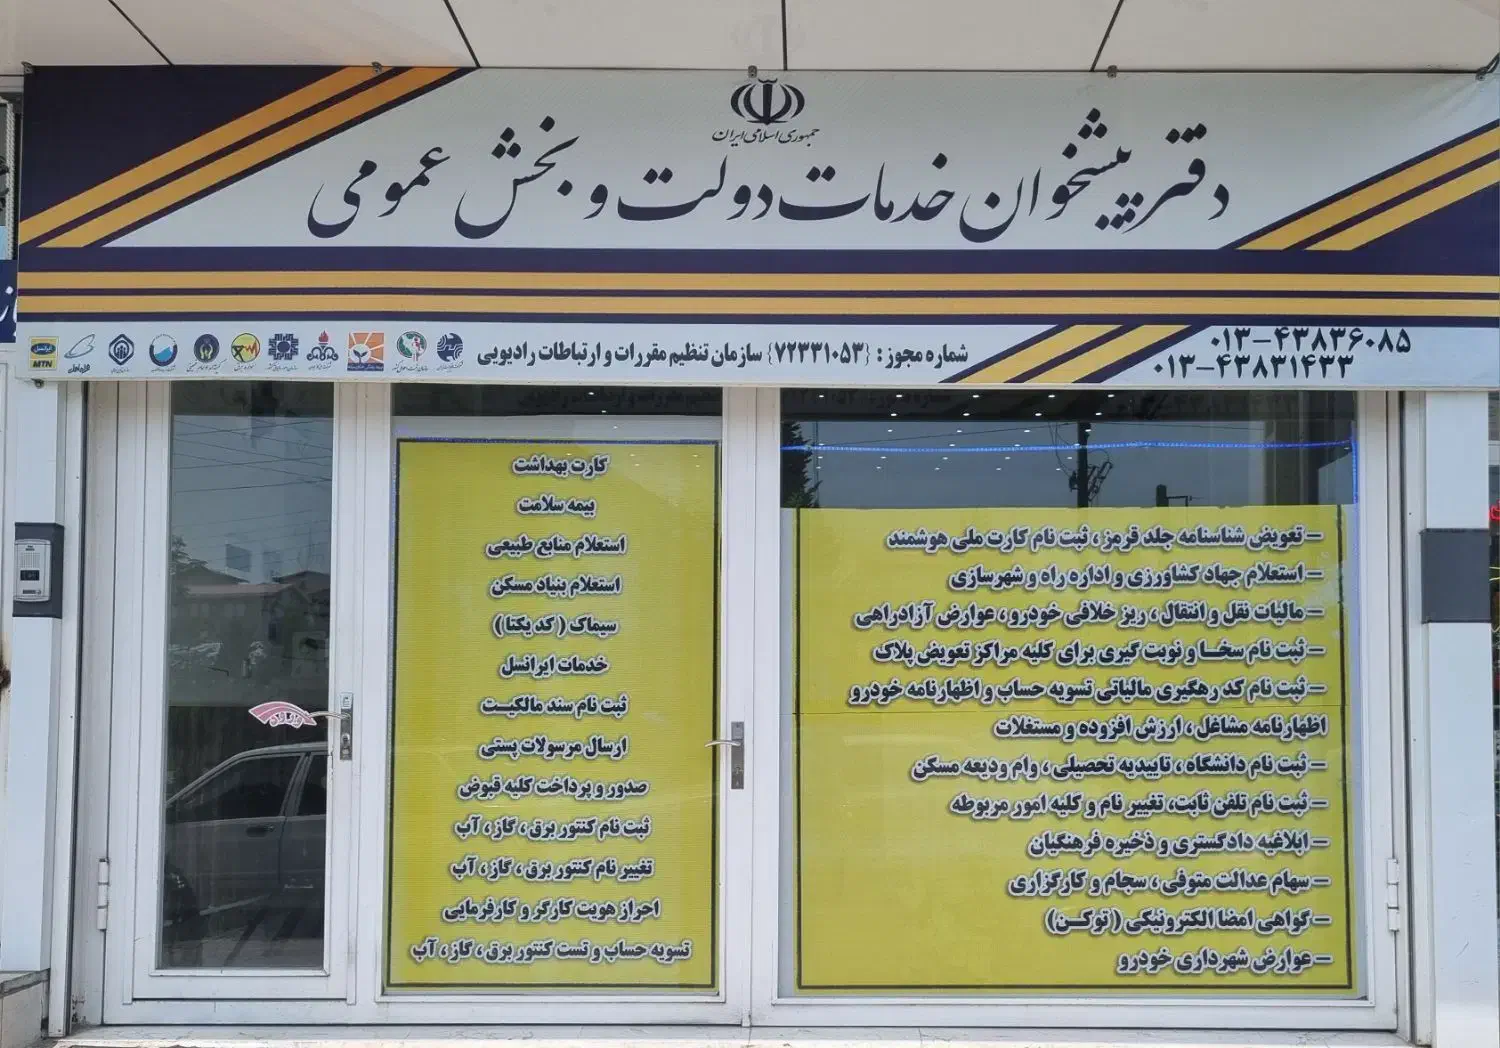 جمهوری اسلامی ایران
دفتر پیشخوان خدمات دولت و بخش عمومی
۰۱۳-۴۳۸۳۶۰۸۵
۰۱۳-۴۳۸۳۱۴۳۳
شماره مجوز : {۷۲۳۳۱۰۵۳} سازمان تنظیم مقررات و ارتباطات رادیویی
ایرانسل
MTN
همراه اول
– تعویض شناسنامه جلد قرمز ، ثبت نام کارت ملی هوشمند
– استعلام جهاد کشاورزی و اداره راه و شهرسازی
– مالیات نقل و انتقال ، ریز خلافی خودرو ، عوارض آزادراهی
– ثبت نام سخا و نوبت گیری برای کلیه مراکز تعویض پلاک
– ثبت نام کد رهگیری مالیاتی تسویه حساب و اظهارنامه خودرو
اظهارنامه مشاغل ، ارزش افزوده و مستغلات
– ثبت نام دانشگاه ، تاییدیه تحصیلی ، وام ودیعه مسکن
– ثبت نام تلفن ثابت، تغییر نام و کلیه امور مربوطه
– ابلاغیه دادگستری و ذخیره فرهنگیان
– سهام عدالت متوفی ، سجام و کارگزاری
– گواهی امضا الکترونیکی ( توکن)
– عوارض شهرداری خودرو
کارت بهداشت
بیمه سلامت
استعلام منابع طبیعی
استعلام بنیاد مسکن
سیماک ( کد یکتا )
خدمات ایرانسل
ثبت نام سند مالکیت
ارسال مرسولات پستی
صدور و پرداخت کلیه قبوض
ثبت نام کنتور برق ، گاز ، آب
تغییر نام کنتور برق ، گاز ، آب
احراز هویت کارگر و کارفرمایی
تسویه حساب و تست کنتور برق ، گاز ، آب